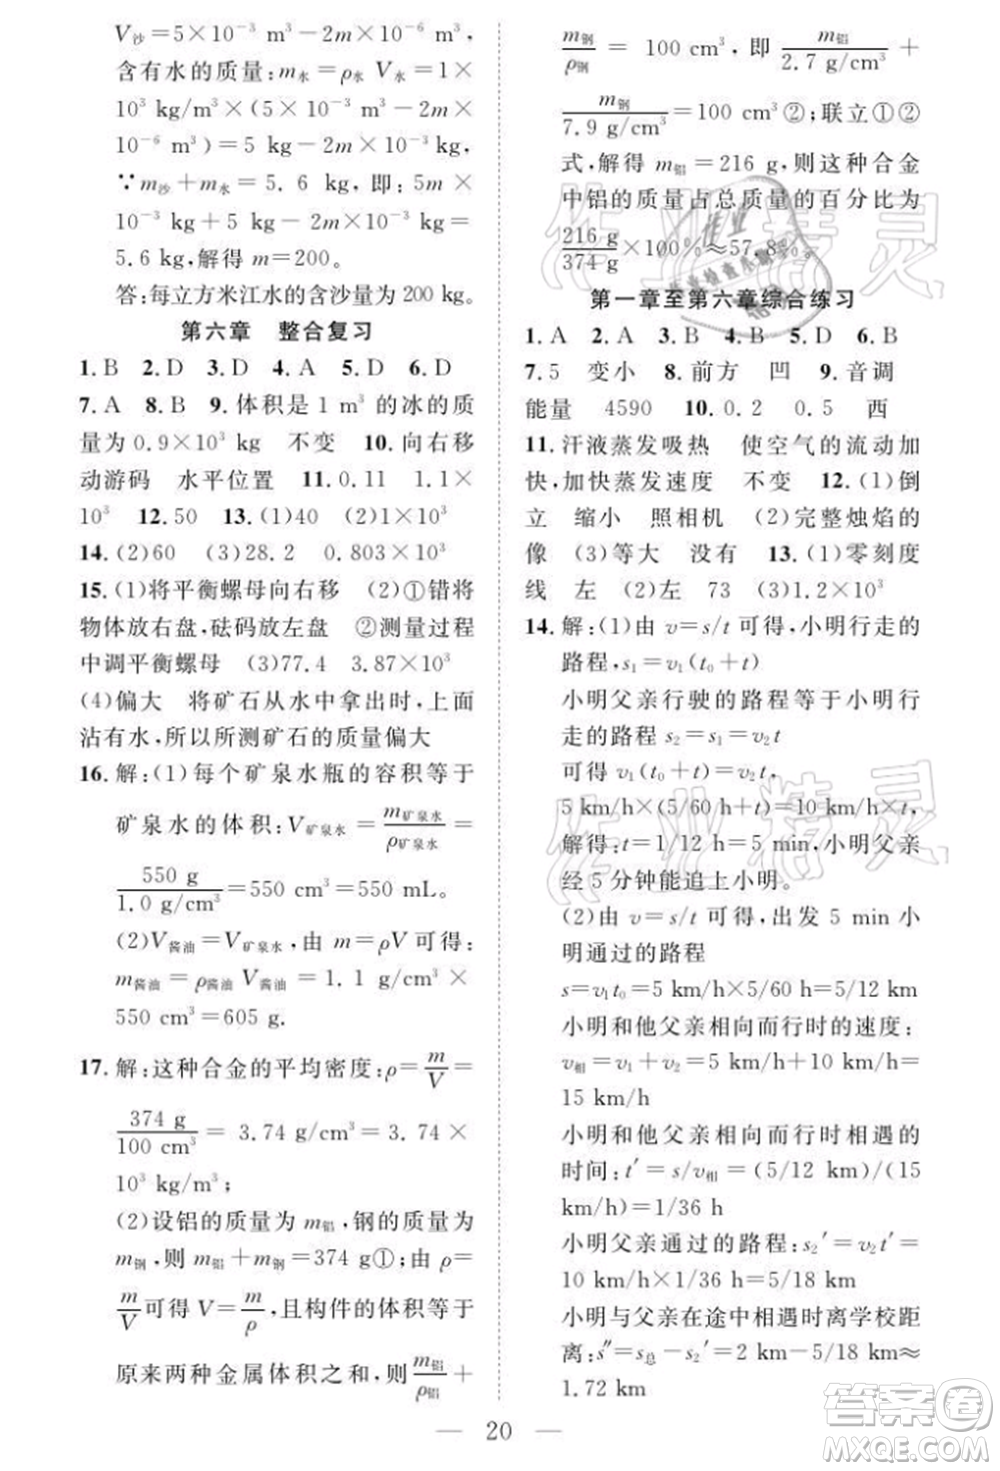 V沙=5×10⁻³ m³-2m×10⁻⁶ m³,
含有水的质量:m水=ρ水 V水=1×
10³ kg/m³×(5×10⁻³ m³-2m×
10⁻⁶ m³)=5 kg-2m×10⁻³ kg
∵m沙+m水=5.6 kg,即:5m×
10⁻³ kg+5 kg-2m×10⁻³ kg=
5.6 kg,解得 m=200。
答:每立方米江水的含沙量为 200 kg。
第六章 整合复习
1.B 2.D 3.D 4.A 5.D 6.D
7.A 8.B 9.体积是 1 m³ 的冰的质
量为 0.9×10³ kg 不变 10.向右移
动游码 水平位置 11.0.11 1.1×
10³ 12.50 13.(1)40 (2)1×10³
14.(2)60 (3)28.2 0.803×10³
15.(1)将平衡螺母向右移 (2)①错将
物体放右盘,砝码放左盘 ②测量过程
中调平衡螺母 (3)77.4 3.87×10³
(4)偏大 将矿石从水中拿出时,上面
沾有水,所以所测矿石的质量偏大
16.解:(1)每个矿泉水瓶的容积等于
矿泉水的体积:V矿泉水=m矿泉水/ρ矿泉水=
550 g/1.0 g/cm³=550 cm³=550 mL。
(2)V酱油=V矿泉水,由 m=ρV 可得:
m酱油=ρ酱油 V酱油=1.1 g/cm³×
550 cm³=605 g.
17.解:这种合金的平均密度:ρ=m/V=
374 g/100 cm³=3.74 g/cm³=3.74×
10³ kg/m³;
(2)设铝的质量为 m铝,钢的质量为
m钢,则 m铝+m钢=374 g①;由 ρ=
m/V可得 V=m/ρ,且构件的体积等于
原来两种金属体积之和,则m铝/ρ铝+
m钢/ρ钢=100 cm³,即 m铝/2.7 g/cm³+
m钢/7.9 g/cm³=100 cm³②;联立①②
式,解得 m铝=216 g,则这种合金
中铝的质量占总质量的百分比为
216 g/374 g×100%≈57.8%。
第一章至第六章综合练习
1.A 2.A 3.B 4.B 5.D 6.B
7.5 变小 8.前方 凹 9.音调
能量 4590 10.0.2 0.5 西
11.汗液蒸发吸热 使空气的流动加
快,加快蒸发速度 不变 12.(1)倒
立 缩小 照相机 (2)完整烛焰的
像 (3)等大 没有 13.(1)零刻度
线 左 (2)左 73 (3)1.2×10³
14.解:(1)由 v=s/t 可得,小明行走的
路程,s₁=v₁(t₀+t)
小明父亲行驶的路程等于小明行
走的路程 s₂=s₁=v₂t
可得 v₁(t₀+t)=v₂t,
5 km/h×(5/60 h+t)=10 km/h×t,
解得:t=1/12 h=5 min,小明父亲
经 5 分钟能追上小明。
(2)由 v=s/t 可得,出发 5 min 小
明通过的路程
s=v₁t₀=5 km/h×5/60 h=5/12 km
小明和他父亲相向而行时的速度:
v相=v₁+v₂=5 km/h+10 km/h=
15 km/h
小明和他父亲相向而行时相遇的
时间:t′=s/v相=(5/12 km)/(15
km/h)=1/36 h
小明父亲通过的路程:s₂′=v₂t′=
10 km/h×1/36 h=5/18 km
小明与父亲在途中相遇时离学校距
离:s″=s总-s₂′=2 km-5/18 km≈
1.72 km
20
作业精灵
作业精灵
答案圈
MXQE.COM